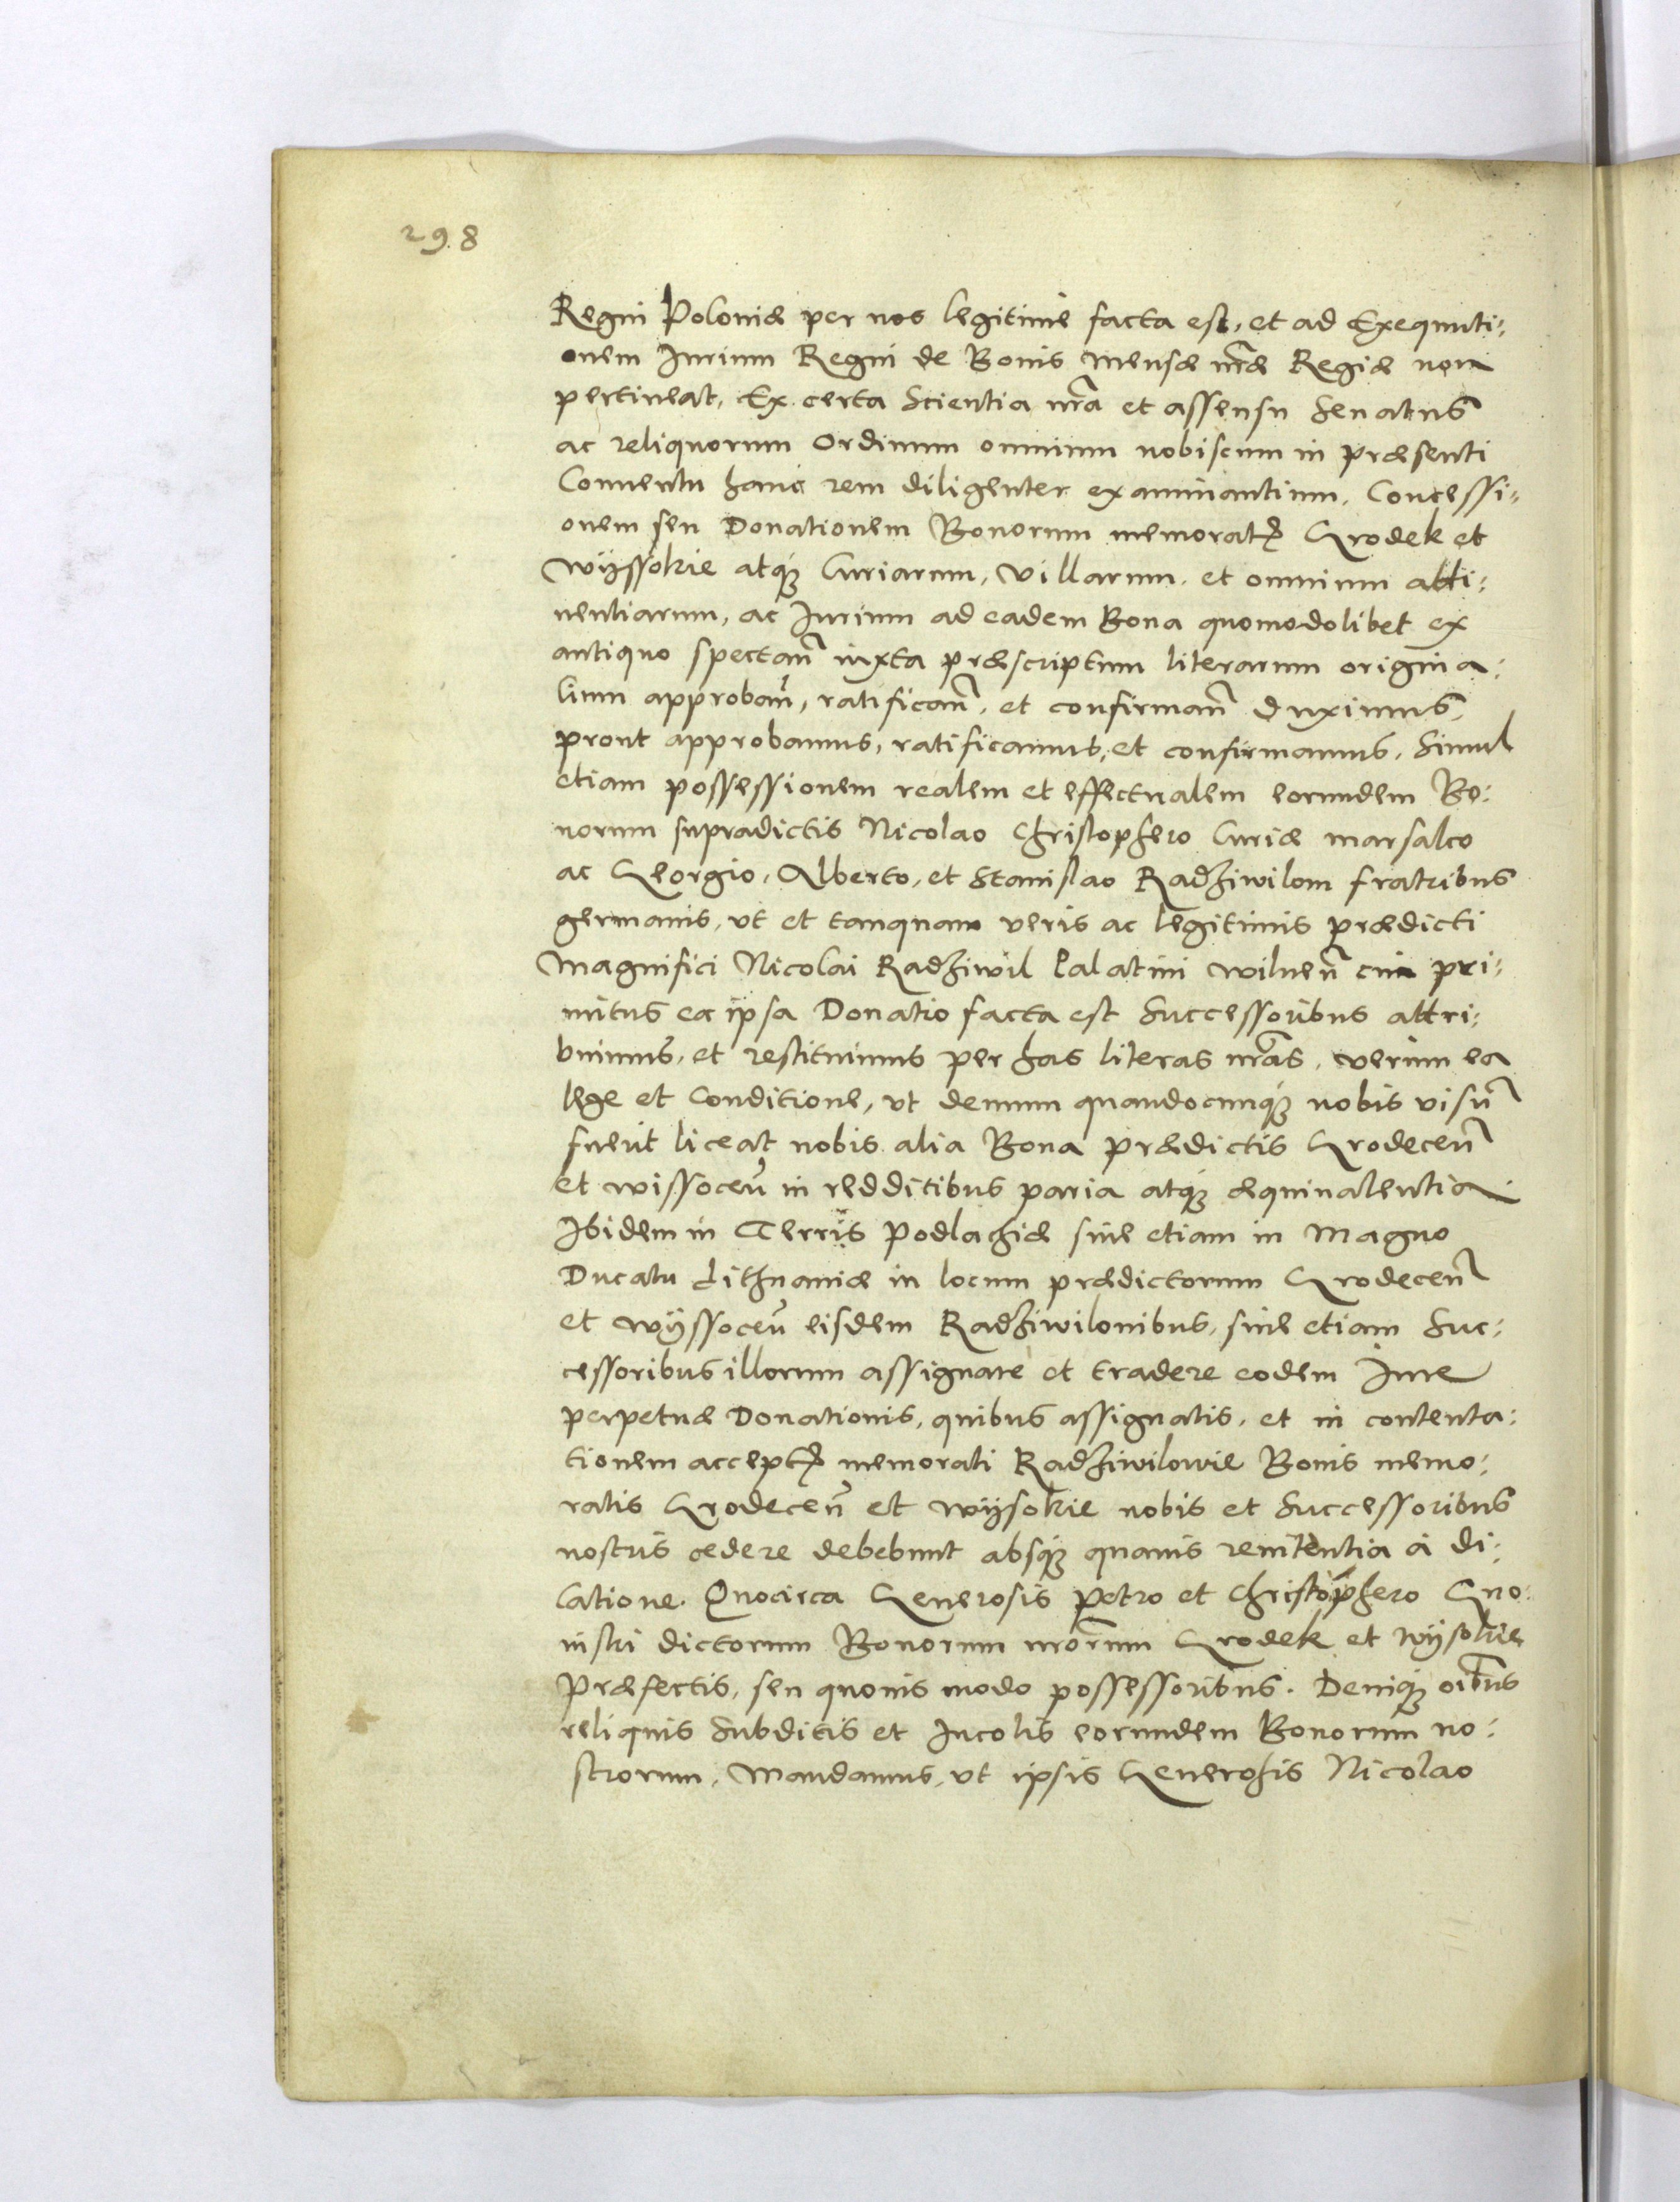 298
Regni Poloniæ per nos legitime facta est, et ad Exequuti:
onem Jurium Regni de Bonis Mensæ nr̃æ Regiæ non
pertineat, Ex certa Scientia nr̃a et assensu Senatus
ac reliquorum Ordinum omnium nobiscum in præsenti
Conuentu hanc rem diligenter examinantium, Concessi:
onem seu Donationem Bonorum memoratꝝ Grodek et
Wyssokie atq́ꝫ Curiarum, Villarum, et omnium atti:
nentiarum, ac Jurium ad eadem Bona quomodolibet ex
antiquo spectan̄ iuxta præscriptum literarum origina:
lium approban̄, ratifican̄, et confirman̄ duximus,
prout approbamus, ratificamus, et confirmamus, Simul
etiam possessionem realem et effectualem eorundem Bo:
norum supradictis Nicolao Christophero Curiæ marsalco
ac Georgio, Alberto, et Stanislao Radziwilom fratribus
germanis, vt et tanquam veris ac legitimis prædicti
Magnifici Nicolai Radziwil Palatini wilnen̄ cui pri:
mitus ea ipsa Donatio facta est Successoribus attri:
buimus, et restituimus per has literas nr̃as, verum ea
lege et Conditione, vt demum quandocunq́ꝫ nobis visū
fuerit liceat nobis alia Bona prædictis Grodecen̄
et wissocen̄ in redditibus paria atq́ꝫ æquiualentia
Ibidem in Terris Podlachiæ siue etiam in Magno
Ducatu Lithuaniæ in locum prædictorum Grodecen̄
et wyssocen̄ eisdem Radziwilonibus, siue etiam Suc:
cessoribus illorum assignare et tradere eodem Jure
perpetuæ Donationis, quibus assignatis, et in contenta:
tionem acceptꝝ memorati Radziwilowie Bonis memo:
ratis Grodecen̄ et wysokie nobis et Successoribus
nostris cedere debebunt absq́ꝫ quauis renitentia a di:
latione. Quocirca Generosis Petro et Christophero Gno:
inski dictorum Bonorum nr̃orum Grodek et wysokie
Præfectis, seu quouis modo possessoribus. Deniq́ꝫ oībus
reliquis Subditis et Incolis eorundem Bonorum no:
strorum, Mandamus, vt ipsis Generosis Nicolao